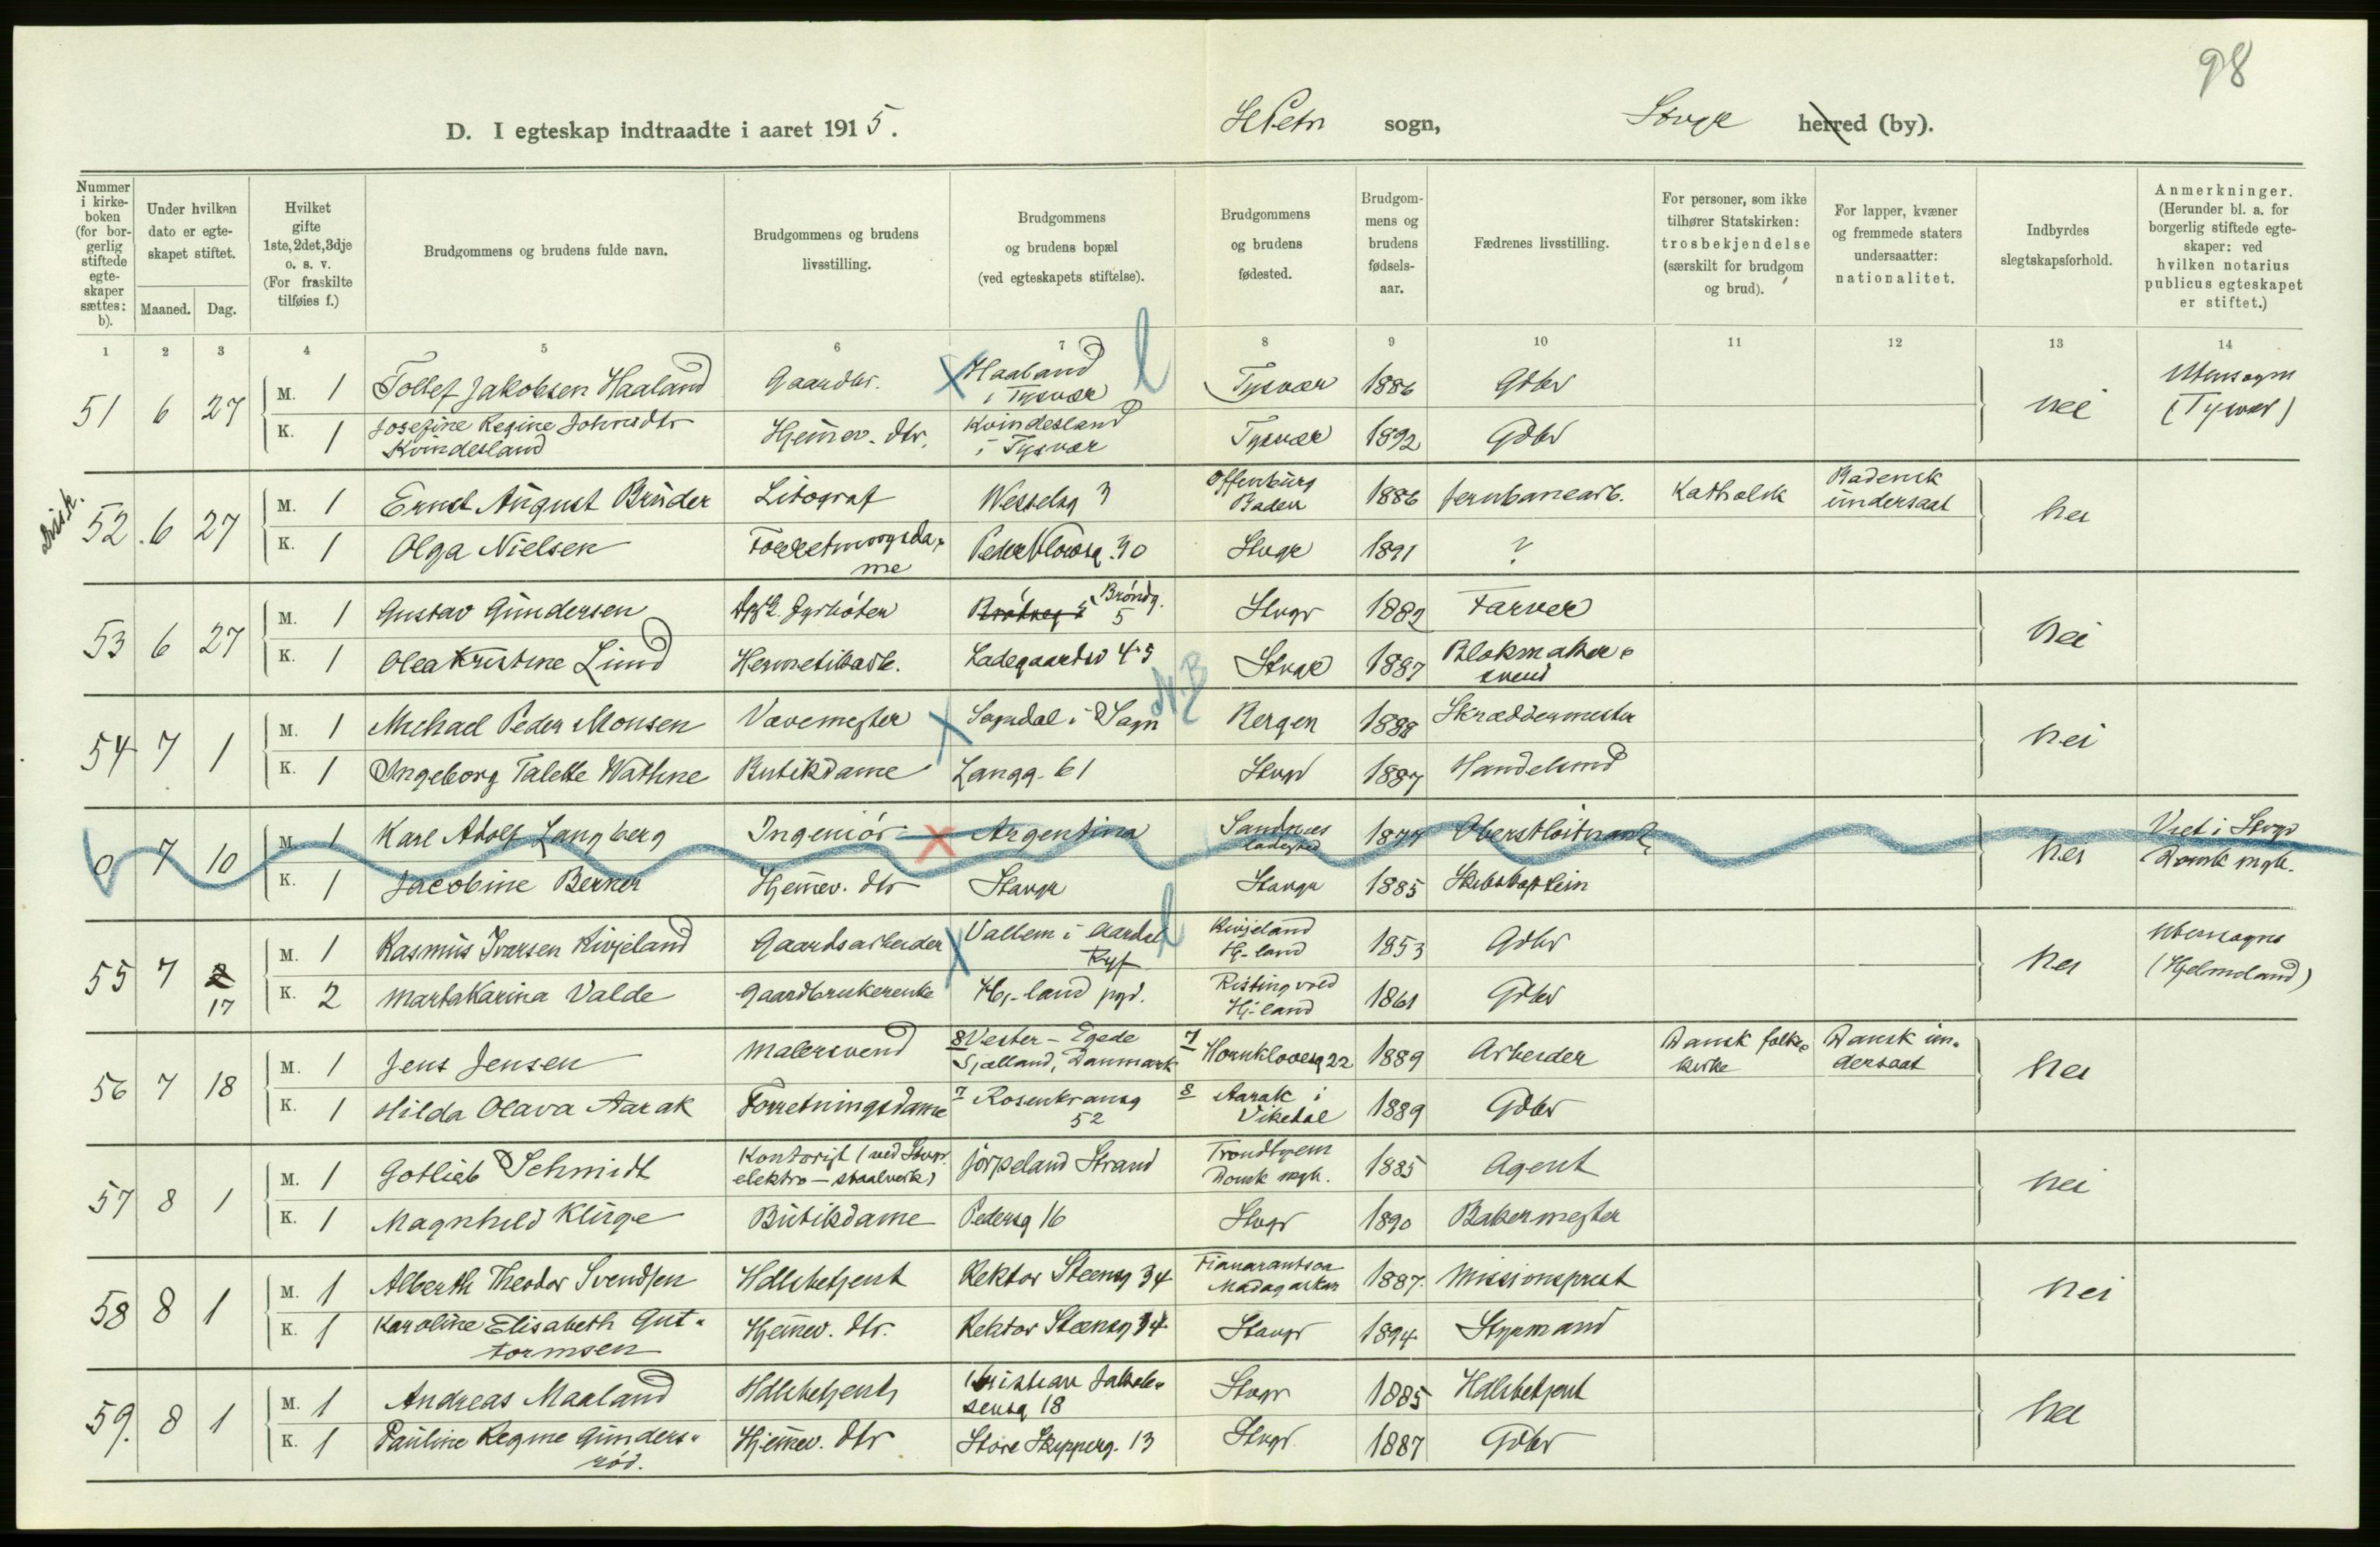 98
D. I egteskap indtraadte i aaret 1915.
St Petri sogn, Stvgr herred (by).
Nummer i kirke-boken (for bor-gerlig stiftede egte-skaper sættes: b).
Under hvilken dato er egte-skapet stiftet.
Maaned. Dag.
Hvilket gifte 1ste, 2det, 3dje o. s. v. (For fraskilte tilføies f.)
Brudgommens og brudens fulde navn.
Brudgommens og brudens livsstilling.
Brudgommens og brudens bopæl (ved egteskapets stiftelse).
Brudgommens og brudens fødested.
Brudgom-mens og brudens fødsels-aar.
Fædrenes livsstilling.
For personer, som ikke tilhører Statskirken: trosbekjendelse (særskilt for brudgom og brud).
For lapper, kvæner og fremmede staters undersaatter: nationalitet.
Indbyrdes slegtskapsforhold.
Anmerkninger. (Herunder bl. a. for borgerlig stiftede egte-skaper: ved hvilken notarius publicus egteskapet er stiftet.)
1 2 3 4 5 6 7 8 9 10 11 12 13 14
51 6 27 M. 1 Tollef Jakobsen Haaland Gaardbr. Haaland i Tysvær Tysvær 1886 Gdbr nei Utensogns (Tysvær)
K. 1 Josefine Regine Johnsdtr Kvindesland Hjemmev. dtr. Kvindesland i Tysvær Tysvær 1892 Gdbr
52. 6 27 M. 1 Ernst August Bruder Litograf Wesselsg 3 Offenburg Baden 1886 Jernbanearb. Katholsk Badensk undersaat nei
K. 1 Olga Nielsen Forretningsdame Peder Klowsg. 30 Stvgr 1891 ?
53 6 27 M. 1 Gustav Gundersen Fyrbøter Brøndg. 5 Stvgr 1882 Farver nei
K. 1 Olea Kristine Lund Hermetikarb. Ladegaardsv 45 Stvgr 1887 Blokmaker-svend
N.B
54 7 1 M. 1 Michael Peder Monsen Vævemester Sogndal i Sogn Bergen 1888 Skræddermester nei
K. 1 Ingeborg Talette Wathne Butikdame Langg. 61 Stvgr 1887 Handelsmd
0 7 10 M. 1 Karl Adolf Langberg Ingeniør Argentina Sandnes ladested 1877 Oberstløitnant nei Viet i Stvgr Domk mgh.
K. 1 Jacobine Berner Hjemmev. dtr Stavgr Stavgr 1885 Skibskaptein
55 7 17 M. 1 Rasmus Ivarsen Kirjeland Gaardsarbeider Vallem i Aardal Ryf Kirjeland Hj-land 1853 Gdbr nei Utensogns (Hjelmeland)
K. 2 Marta Karina Valde Gaardbrukerenke Hj-land pgd. Ristingvold Hj-land 1861 Gdbr
56 7 18 M. 1 Jens Jensen Malersvend 8 Vester-Egede Sjælland, Danmark 7 Hornklovesg 22 1889 Arbeider Dansk folkekirke Dansk undersaat nei
K. 1 Hilda Olava Aarak Forretningsdame 7 Rosenkransg 52 8 Aarak i Vikedal 1889 Gdbr
57 8 1 M. 1 Gotlieb Schmidt Kontorist (ved Stvgr. elektro-staalverk) Jørpeland Strand Trondhjem Domk mgh. 1885 Agent nei
K. 1 Magnhild Kluge Butikdame Pedersg 16 Stvgr 1890 Bakermester
58 8 1 M. 1 Alberth Theodor Svendsen Hdlsbetjent Rektor Steensg 34 Fianarantsoa Madagaskar 1887. Missionsprest nei
K. 1 Karoline Elisabeth Guttormsen Hjemmev. dtr. Rektor Steensg 34 Stavgr 1894 Styrmand
59. 8 1 M. 1 Andreas Maaland Hdlsbetjent Kristian Jakobsensg 18 Stvgr 1885 Hdlsbetjent nei
K. 1 Pauline Regine Gundersrød. Hjemmev. dtr Store Skipperg. 13 Stvgr 1887 Gdbr